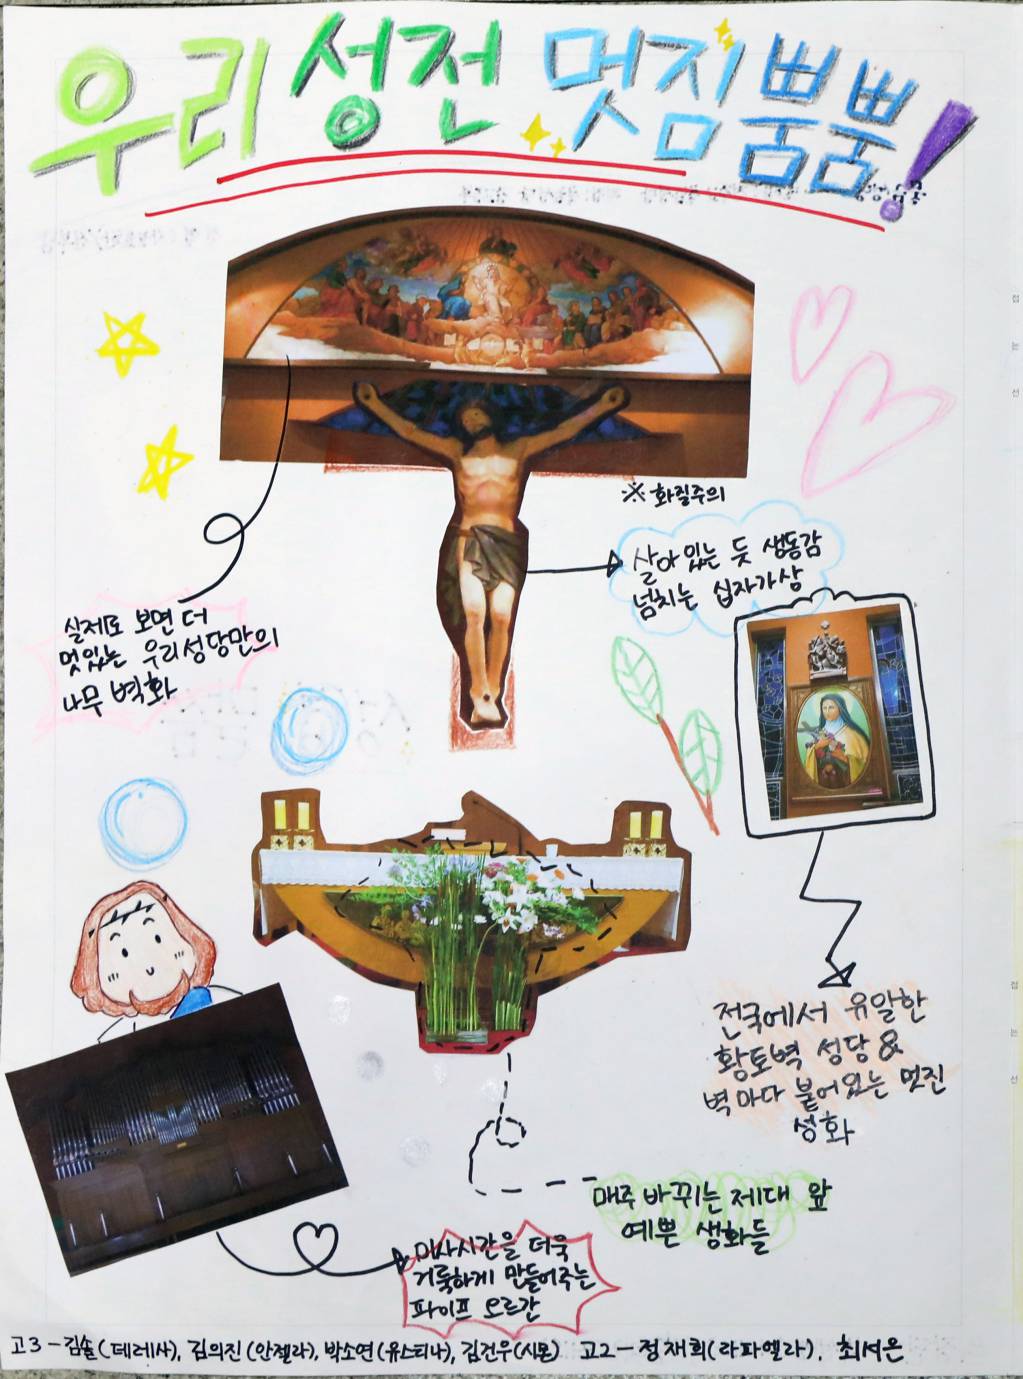 우리 성전 멋짐 뿜뿜!
※ 화질주의
살아 있는 듯 생동감
넘치는 십자가상
실제로 보면 더
멋있는 우리성당만의
나무 벽화
전국에서 유일한
황토벽 성당 &
벽마다 붙어있는 멋진
성화
매주 바뀌는 제대 앞
예쁜 생화들
미사시간을 더욱
거룩하게 만들어주는
파이프 오르간
고3-김솔(데레사), 김의진(안젤라), 박소연(유스티나), 김건우(시몬) 고2-정재희(라파엘라), 최서은